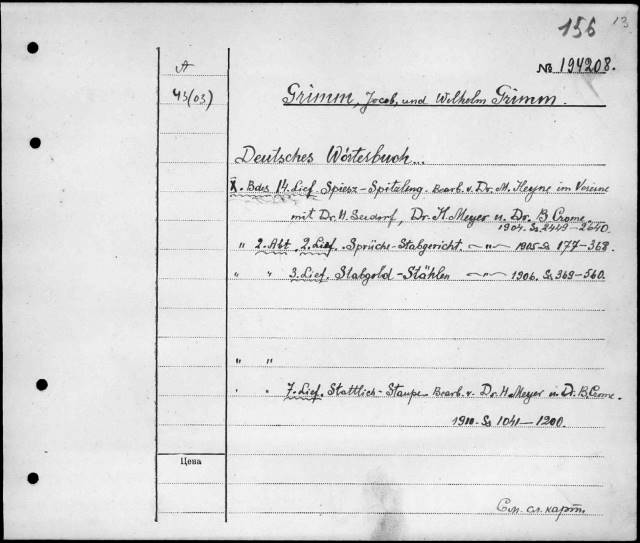 156 13
№ 194208.
A
43(03)
Grimm, Jacob, und Wilhelm Grimm.
Deutsches Wörtesbuch...
X. Bdes 14. Lief. Spiesz-Spitzling. Bearb. v. Dr. M. Heyne im Vereine
mit Dr. H. Seedorf, Dr. H. Meyer u. Dr. B. Crome.
1904. Ss 2449-2640.
" 2. Abt. 2. Lief. Sprüche-Stabgericht. ~ " ~ 1905. Ss 177-368.
" " 3. Lief. Stabgold-Stählen ~ " ~ 1906. Ss 369-560.
" "
" " 7. Lief. Stattlich-Staupe. Bearb. v. Dr. H. Meyer u. Dr. B. Crome.
1910. Ss 1041-1200.
Цена
См. сл. карт.